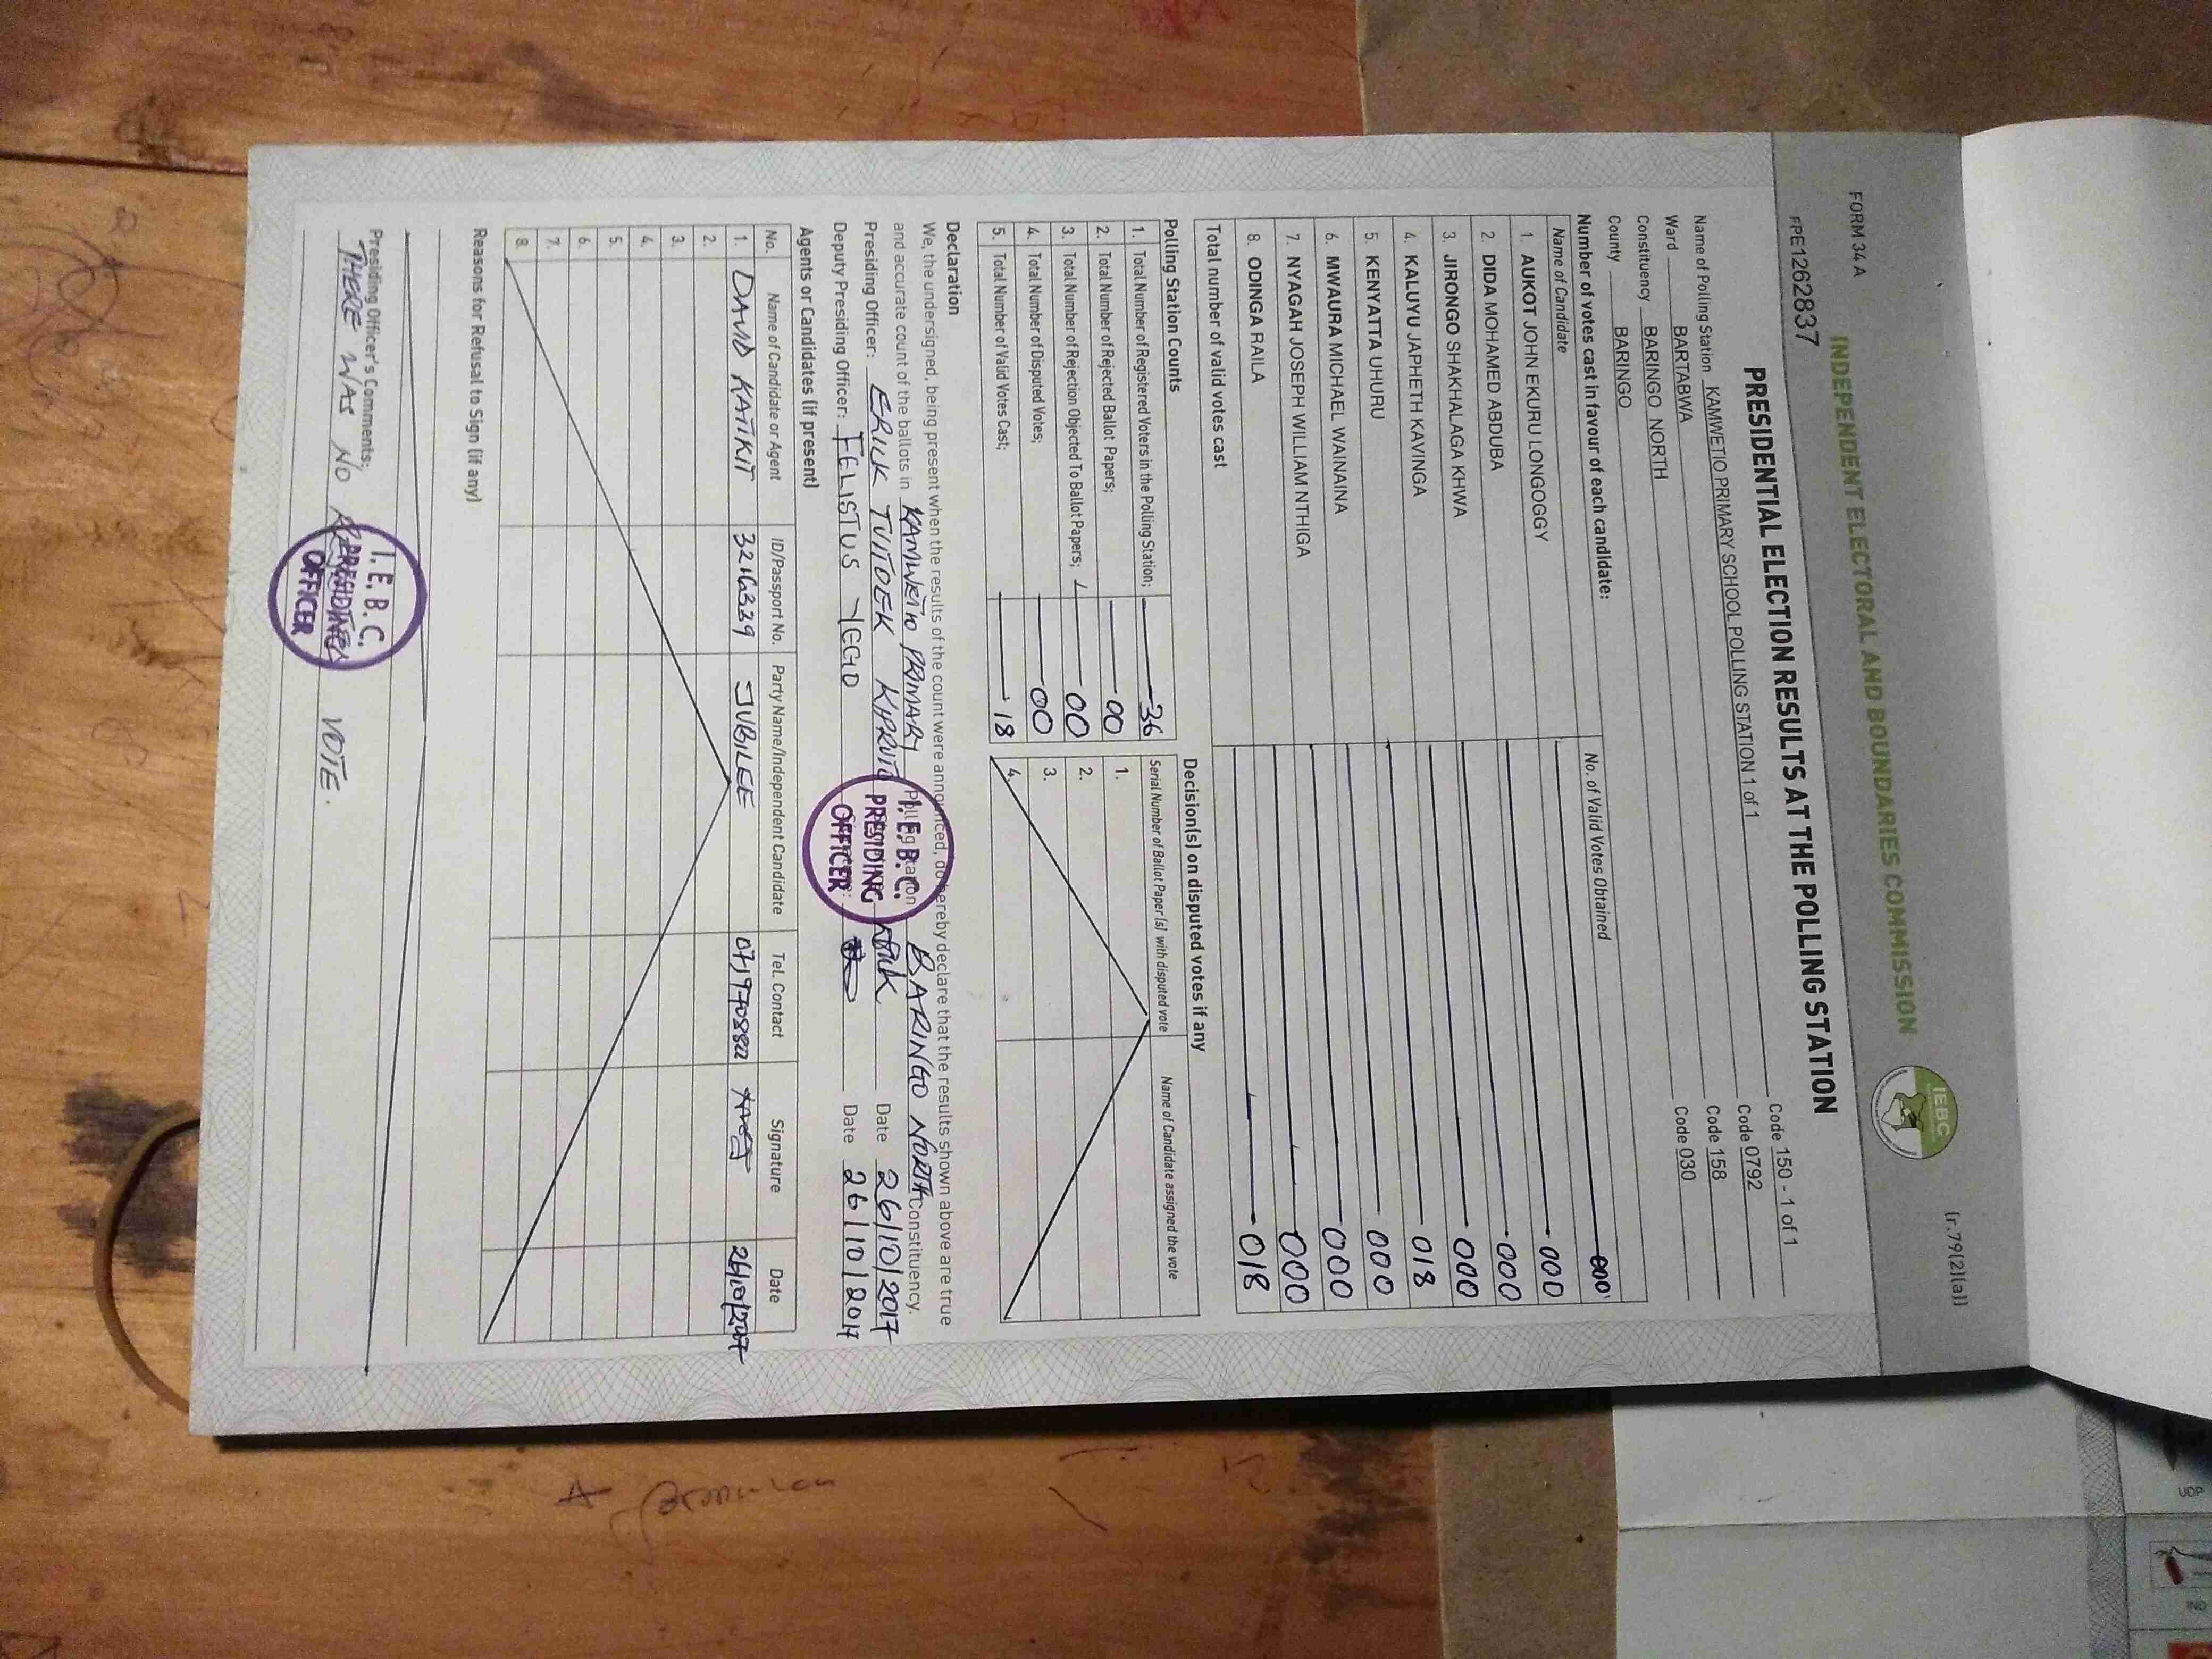 FORM 34 A
(r.79(2)(a))
INDEPENDENT ELECTORAL AND BOUNDARIES COMMISSION
IEBC
FPE1262837
PRESIDENTIAL ELECTION RESULTS AT THE POLLING STATION
Name of Polling Station KAMWETIO PRIMARY SCHOOL POLLING STATION 1 of 1 Code 150 - 1 of 1
Ward BARTABWA Code 0792
Constituency BARINGO NORTH Code 158
County BARINGO Code 030
Number of votes cast in favour of each candidate:
Name of Candidate No. of Valid Votes Obtained
1. AUKOT JOHN EKURU LONGOGGY 000
2. DIDA MOHAMED ABDUBA 000
3. JIRONGO SHAKHALAGA KHWA 000
4. KALUYU JAPHETH KAVINGA 000
5. KENYATTA UHURU 018
6. MWAURA MICHAEL WAINAINA 000
7. NYAGAH JOSEPH WILLIAM NTHIGA 000
8. ODINGA RAILA 000
Total number of valid votes cast 018
Polling Station Counts
1. Total Number of Registered Voters in the Polling Station; 36
2. Total Number of Rejected Ballot Papers; 00
3. Total Number of Rejection Objected To Ballot Papers; 00
4. Total Number of Disputed Votes; 00
5. Total Number of Valid Votes Cast; 18
Decision(s) on disputed votes if any
Serial Number of Ballot Paper (s) with disputed vote Name of Candidate assigned the vote
1.
2.
3.
4.
Declaration
We, the undersigned, being present when the results of the count were announced, do hereby declare that the results shown above are true
and accurate count of the ballots in KAMWETIO PRIMARY Polling Station BARINGO NORTH Constituency.
Presiding Officer: ERICK TUITOEK KIPRUTO Date 26/10/2017
Deputy Presiding Officer: FELISTUS YEGGO Date 26/10/2017
I. E. B. C.
PRESIDING
OFFICER
Agents or Candidates (if present)
No. Name of Candidate or Agent ID/Passport No. Party Name/Independent Candidate Tel. Contact Signature Date
1. DAVID KATIKIT JUBILEE 26/10/2017
2.
3.
4.
5.
6.
7.
8.
Reasons for Refusal to Sign (if any)
Presiding Officer's Comments:
THERE WAS NO VOTE.
I. E. B. C.
PRESIDING
OFFICER
UDP
IND